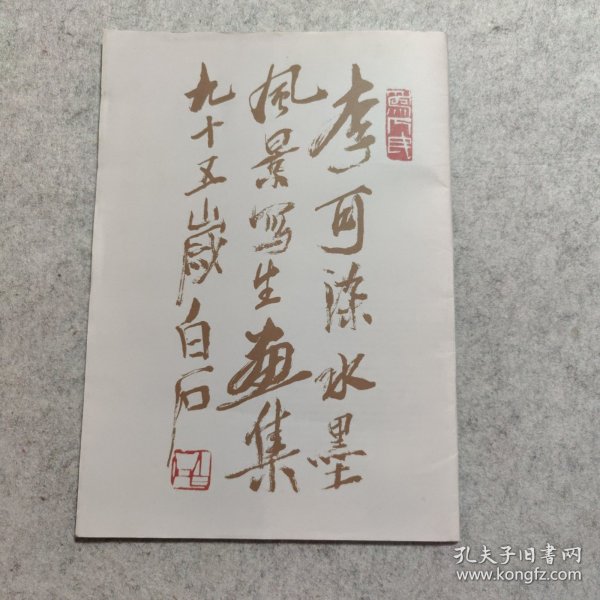 李可染水墨
風景写生画集
九十五歲白石
為人民
孔夫子旧书网
www.kongfz.com